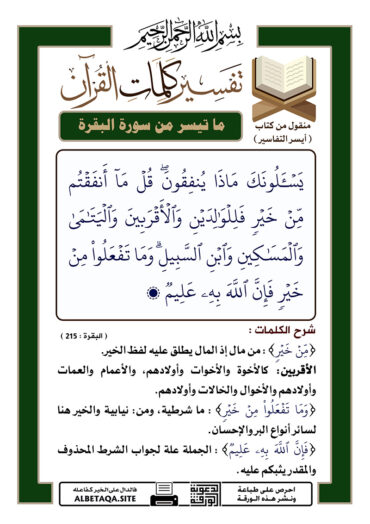 بسم الله الرحمن الرحيم
تفسير كلمات القرآن
منقول من كتاب
( أيسر التفاسير )
ما تيسر من سورة البقرة
يَسْـَٔلُونَكَ مَاذَا يُنفِقُونَۖ قُلْ مَآ أَنفَقْتُم
مِّنْ خَيْرٍ فَلِلْوَٰلِدَيْنِ وَٱلْأَقْرَبِينَ وَٱلْيَتَٰمَىٰ
وَٱلْمَسَٰكِينِ وَٱبْنِ ٱلسَّبِيلِۗ وَمَا تَفْعَلُوا۟ مِنْ
خَيْرٍ فَإِنَّ ٱللَّهَ بِهِۦ عَلِيمٌ
شرح الكلمات :
( البقرة : 215 )
﴿مِّنْ خَيْرٍ﴾ : من مال إذ المال يطلق عليه لفظ الخير.
الأقربين: كالأخوة والأخوات وأولادهم، والأعمام والعمات
وأولادهم والأخوال والخالات وأولادهم.
﴿وَمَا تَفْعَلُوا۟ مِنْ خَيْرٍ﴾ : ما شرطية، ومن: نيابية والخير هنا
لسائر أنواع البر والإحسان.
﴿فَإِنَّ ٱللَّهَ بِهِۦ عَلِيمٌ﴾ : الجملة علة لجواب الشرط المحذوف
والمقدر يثبكم عليه.
احرص على طباعة
ونشر هذه الورقة
الدعوية
الورقة
فالدال على الخير كفاعله
ALBETAQA.SITE